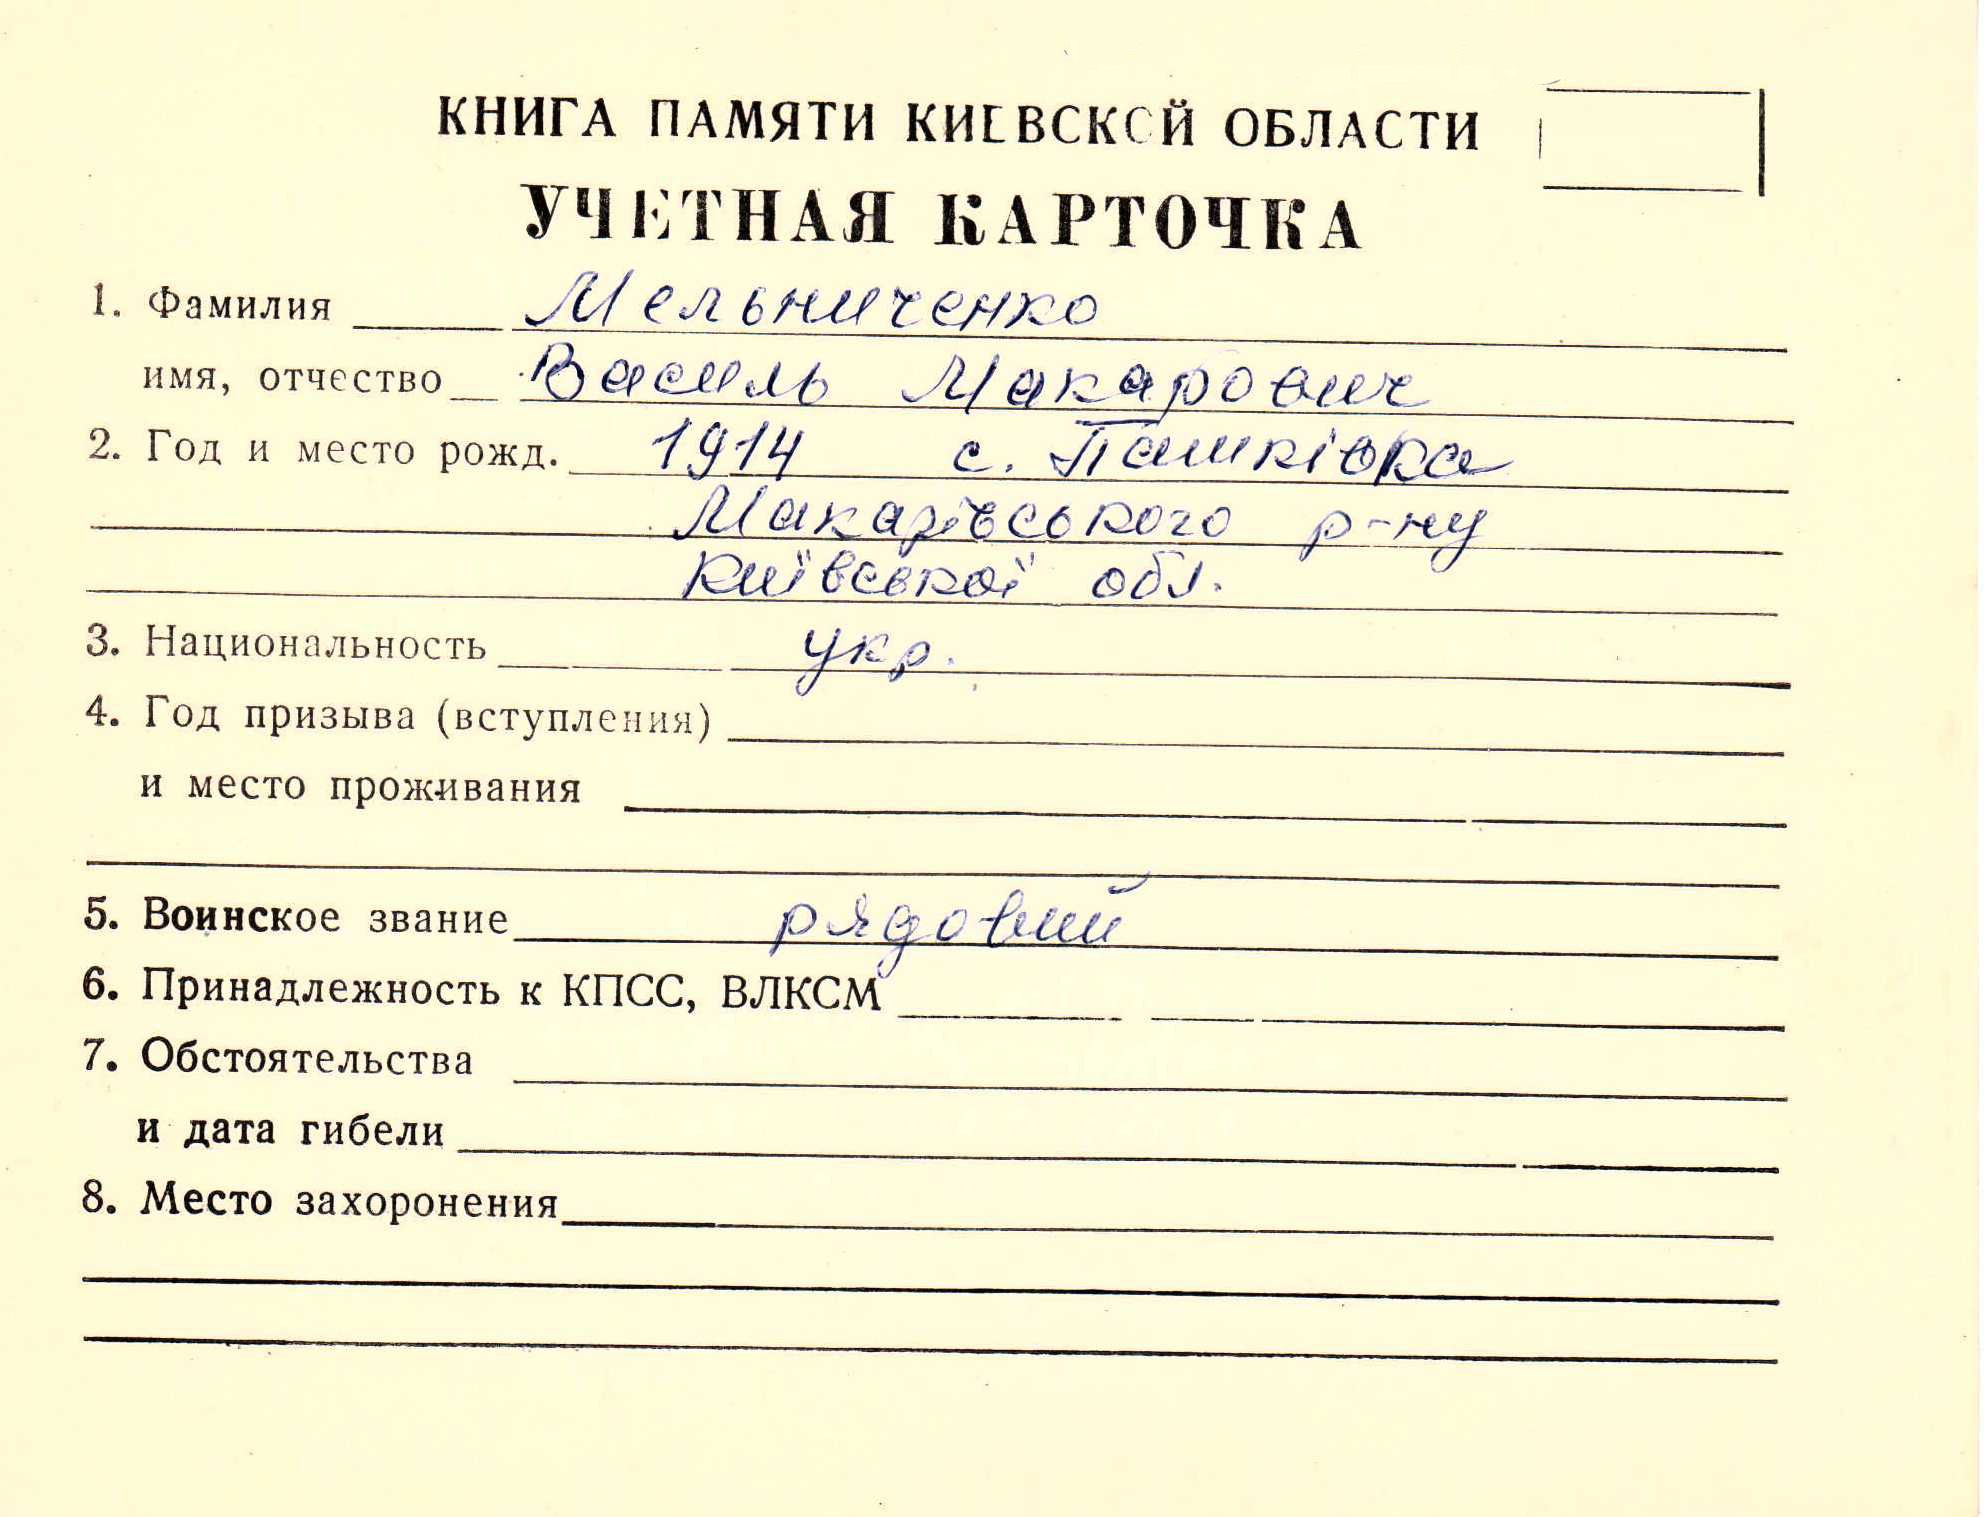 КНИГА ПАМЯТИ КИЕВСКОЙ ОБЛАСТИ
УЧЕТНАЯ КАРТОЧКА
1. Фамилия Мельниченко
имя, отчество Василь Макарович
2. Год и место рожд. 1914 с. Пашківка
Макарівського р-ну
Київської обл.
3. Национальность укр.
4. Год призыва (вступления)
и место проживания
5. Воинское звание рядовий
6. Принадлежность к КПСС, ВЛКСМ
7. Обстоятельства
и дата гибели
8. Место захоронения